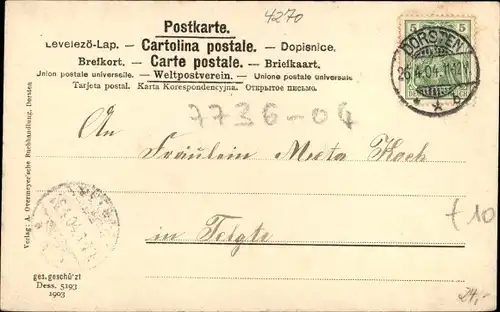 4270
Postkarte.
Levelező-Lap. — Cartolina postale. — Dopisnice.
Brefkort. — Carte postale. — Briefkaart.
Union postale universelle. — Weltpostverein. — Unione postale universale
Tarjeta postal. Karta Korespondencyjna. Открытое письмо.
5 5
DORSTEN
26.4.04. 11-12V
* * b
7736-04
An
Fräulein Meta Koch
in Telgte
£10
Verlag: A. Overmeyer'sche Buchhandlung, Dorsten
ges. geschützt
Dess. 5193
1903
24,-